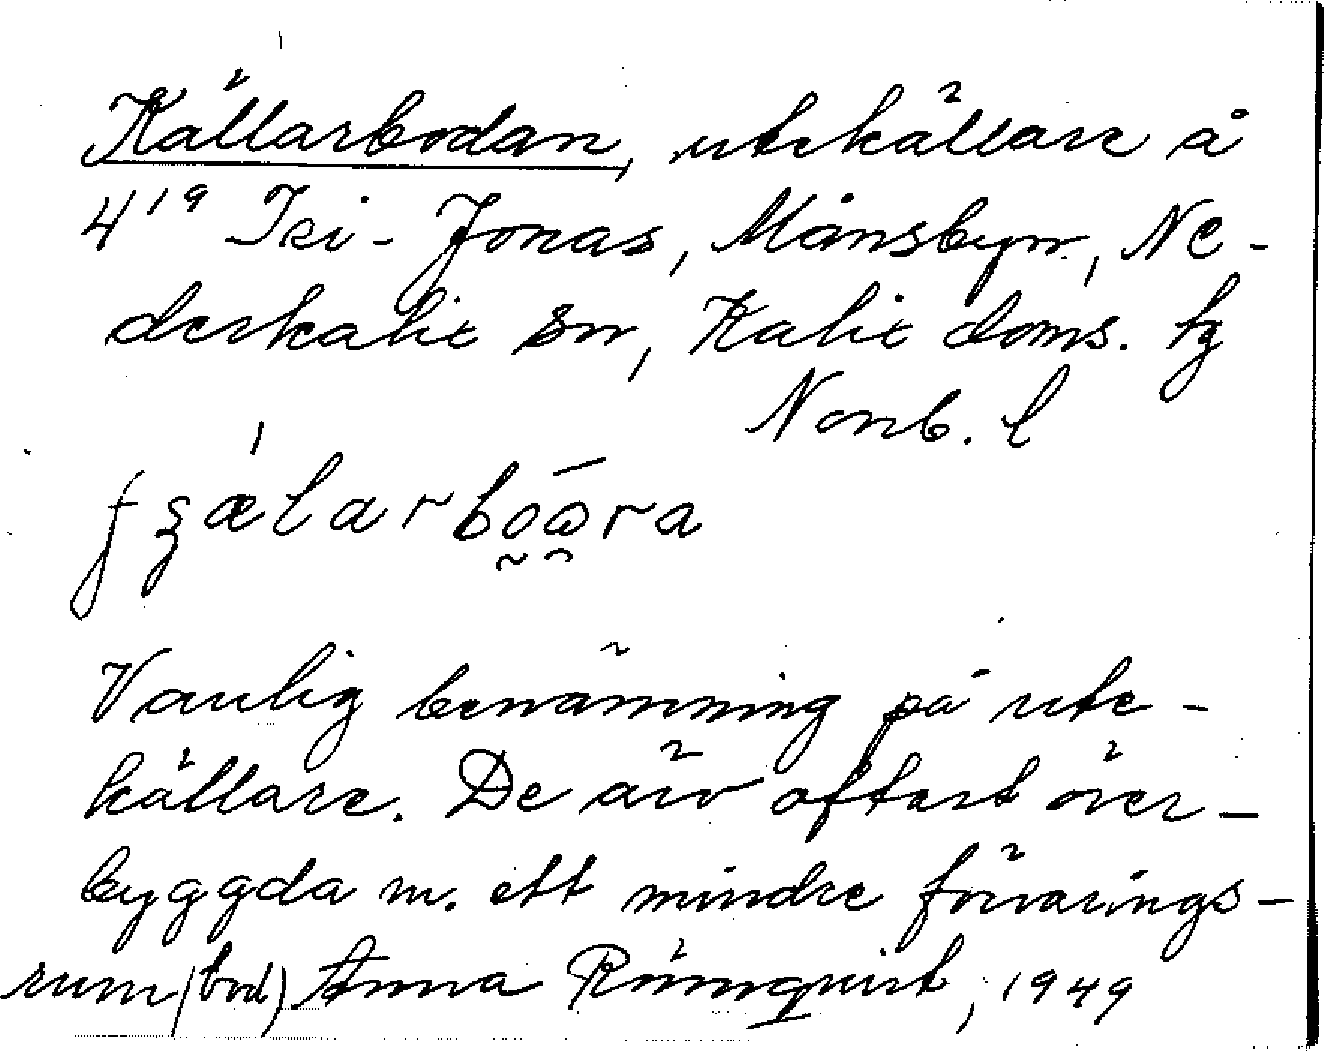 Källarbodan, utekällare å
4¹⁹ Isi-Jonas, Månsbyn, Ne-
derkalix sn, Kalix doms. tg
Norrb. l
Vanlig benämning på ute-
källare. De äro oftast över-
byggda m. ett mindre förvarings-
rum (bod). Anna Rönnquist, 1949